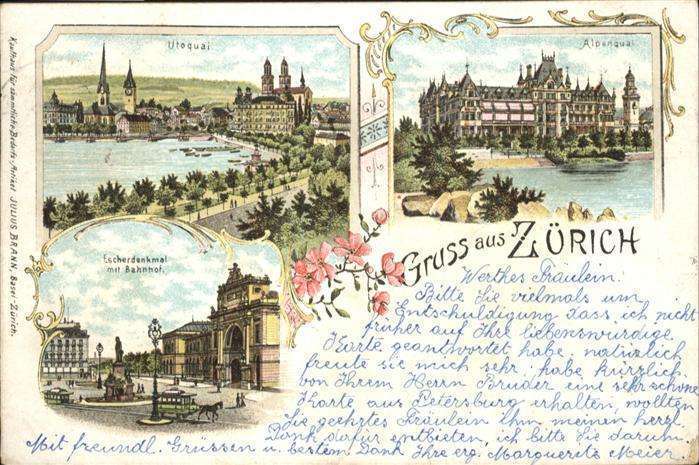 Utoquai
Alpenquai
Kaufhaus für sämmtliche Bedarfs-Artikel JULIUS BRANN, Bazar-Zürich.
Escherdenkmal
mit Bahnhof.
Gruss aus ZÜRICH
Werthes Fräulein!
Bitte Sie vielmals um
Entschuldigung dass ich nicht
früher auf Ihre liebenswürdige
Karte geantwortet habe. natürlich
freute sie mich sehr. habe kürzlich
von Ihrem Herrn Bruder eine sehr schöne
Karte aus Petersburg erhalten, wollten
Sie geehrtes Fräulein ihm meinen herzl.
Dank dafür entbieten, ich bitte Sie darum.
Mit freundl. Grüssen u. bestem Dank Ihre erg. Marguerite Meier.